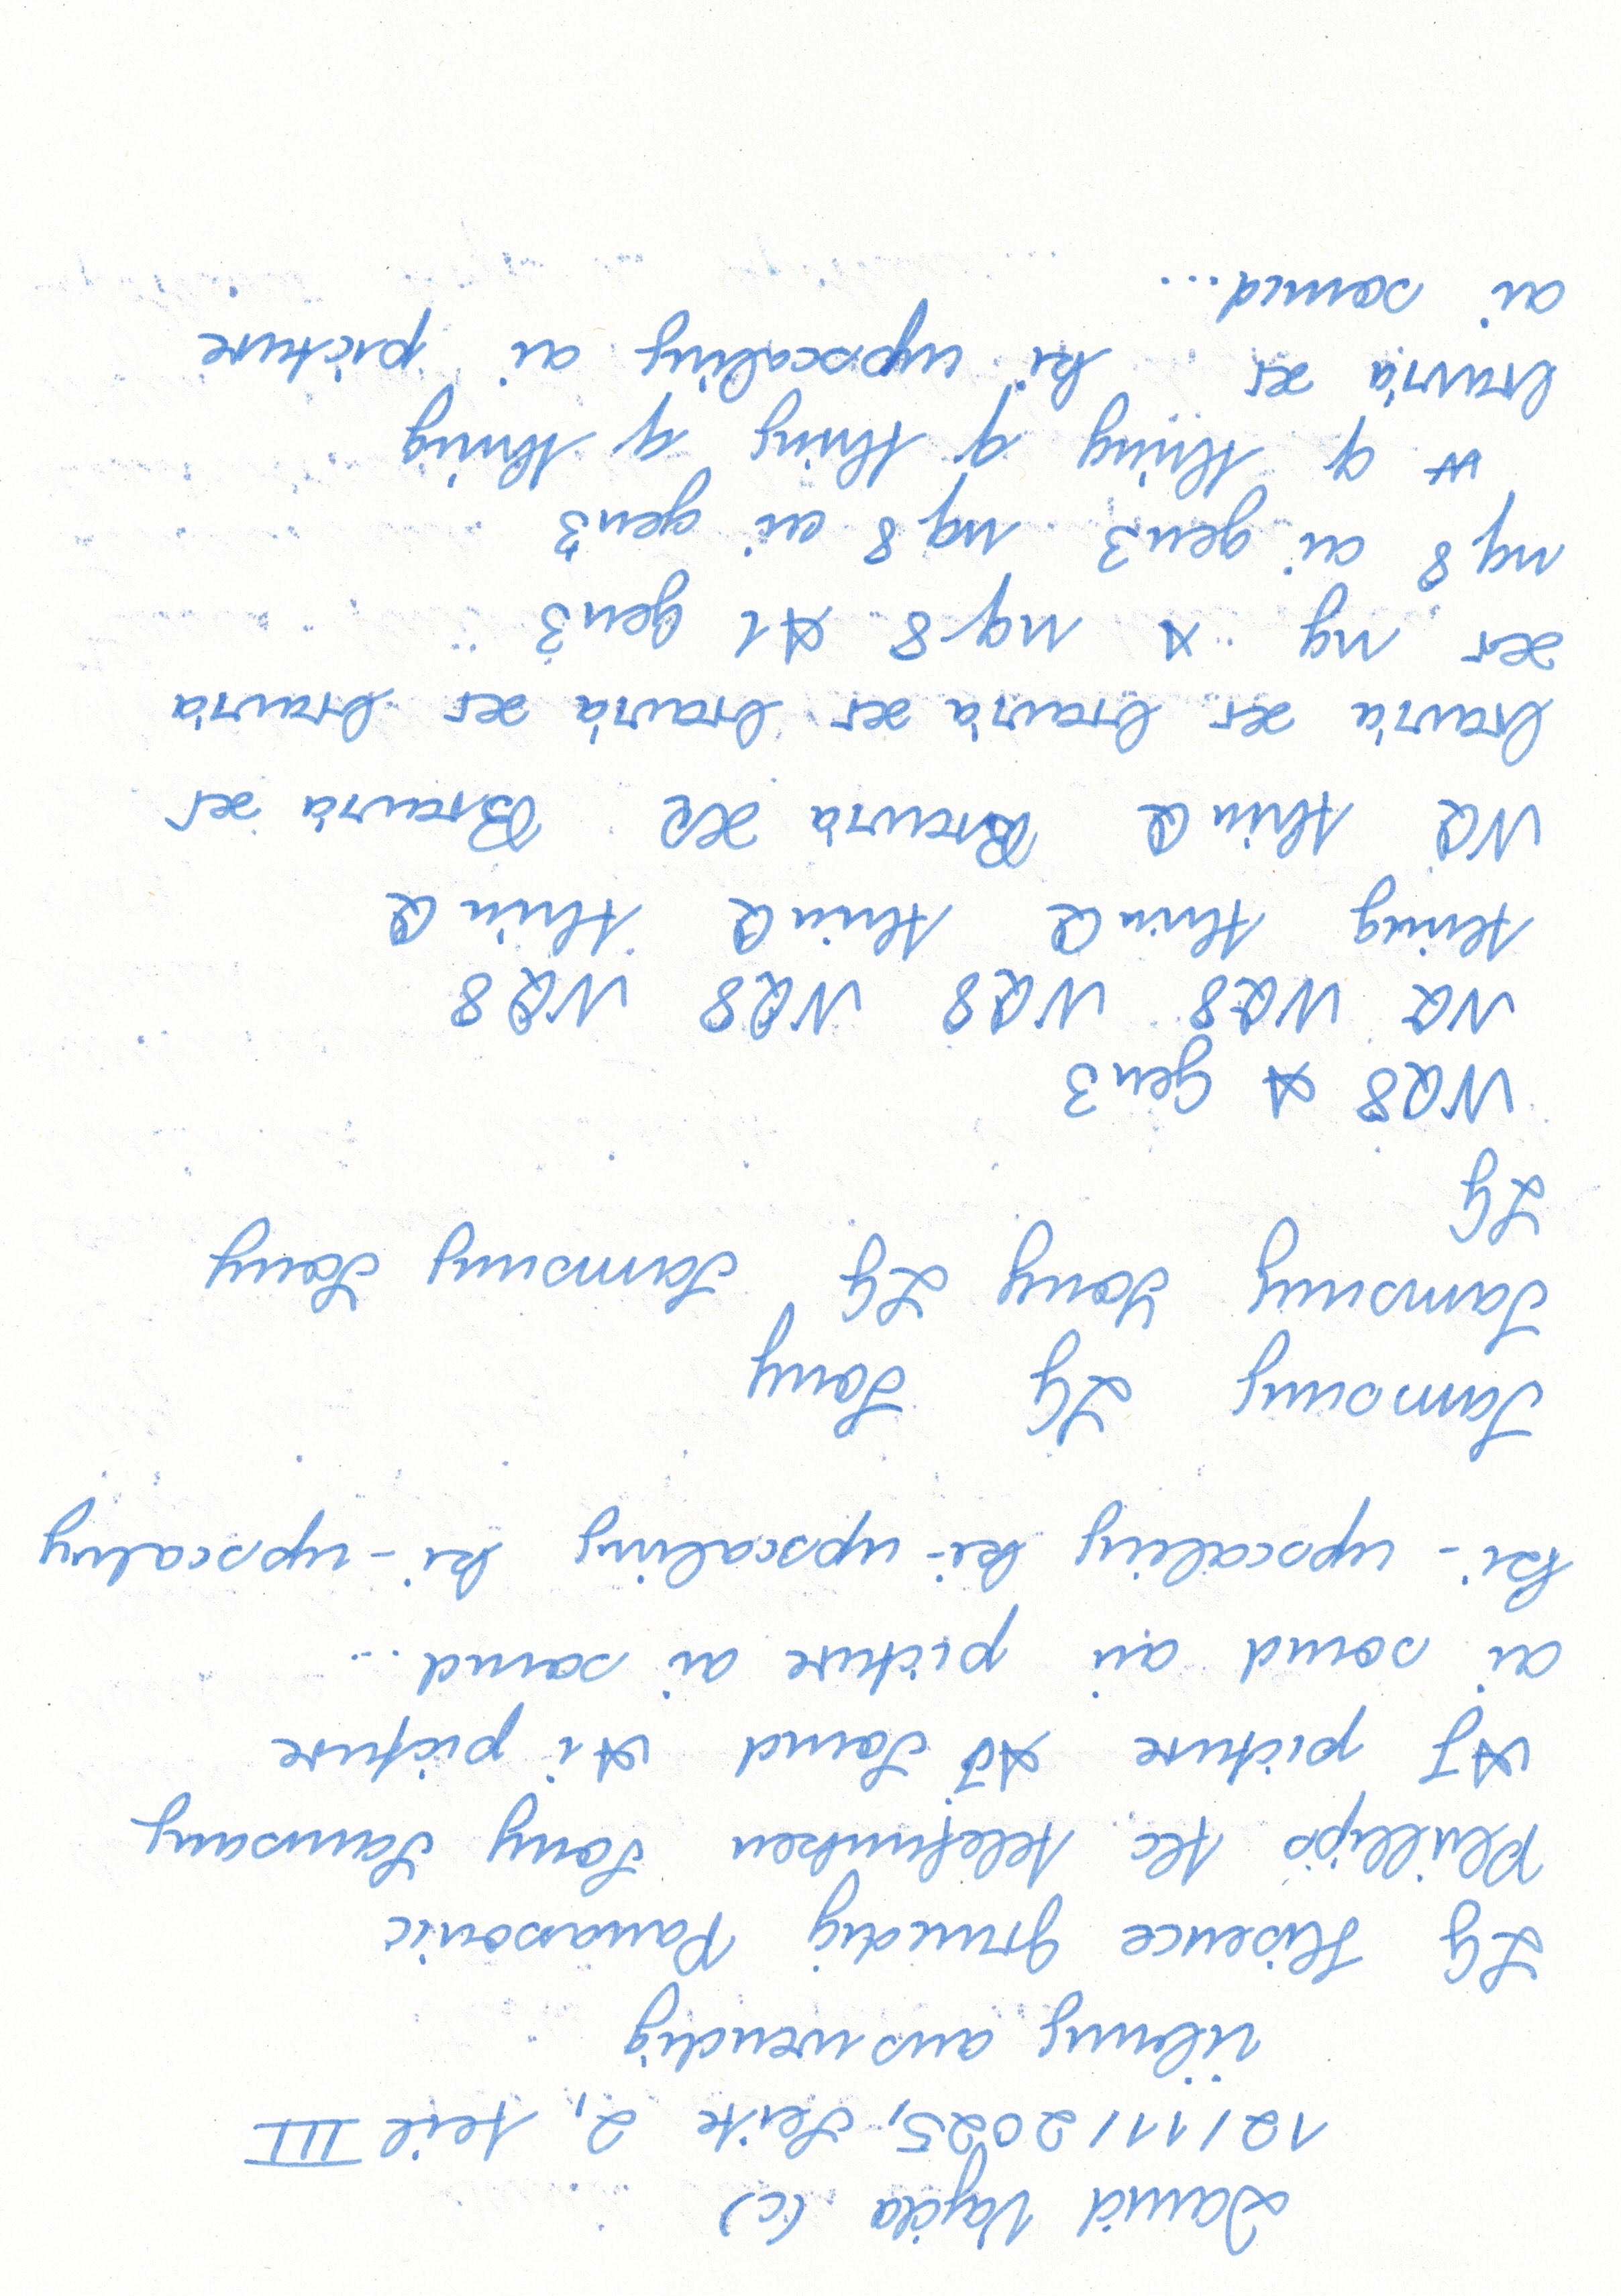 David Vajda (c)
12/11/2025, Seite 2, teil III
übung auswendig
LG Hisence grundig Panasonic
Phillips tlc telefunken Sony Samsung
AI picture AI Sound Ai picture
ai sound ai picture ai sound...
ki-upscaling ki-upscaling ki-upscaling
Samsung LG Sony
Samsung Sony LG Samsung Sony
LG
NQ8 A Gen3
NQ NQ8 NQ8 NQ8 NQ8
thinq thinQ thinQ thinQ
NQ thinQ Bravia XR Bravia xr
bravia xr bravia xr bravia xr bravia
xr nq nq8 AI gen3
nq8 ai gen3 nq8 ai gen3
q thinq q thinq q thinq
bravia xr ki upscaling ai picture
ai sound...